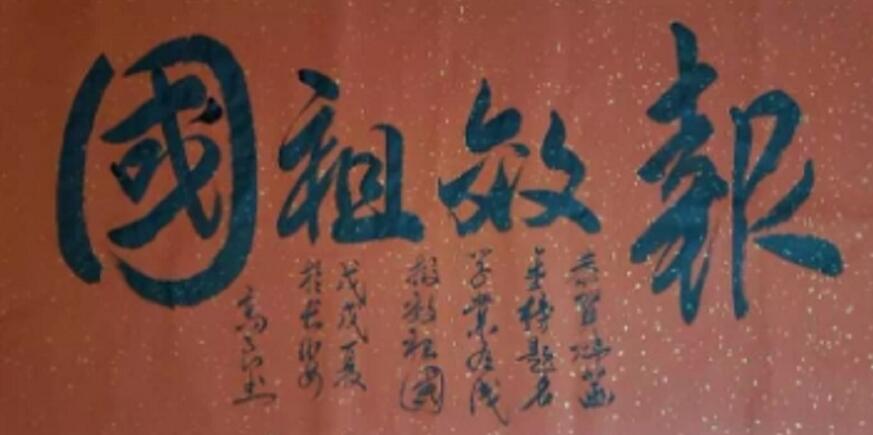 報效祖國
恭賀
金榜題名
學業有成
報效祖國
戊戌夏
於長安
高